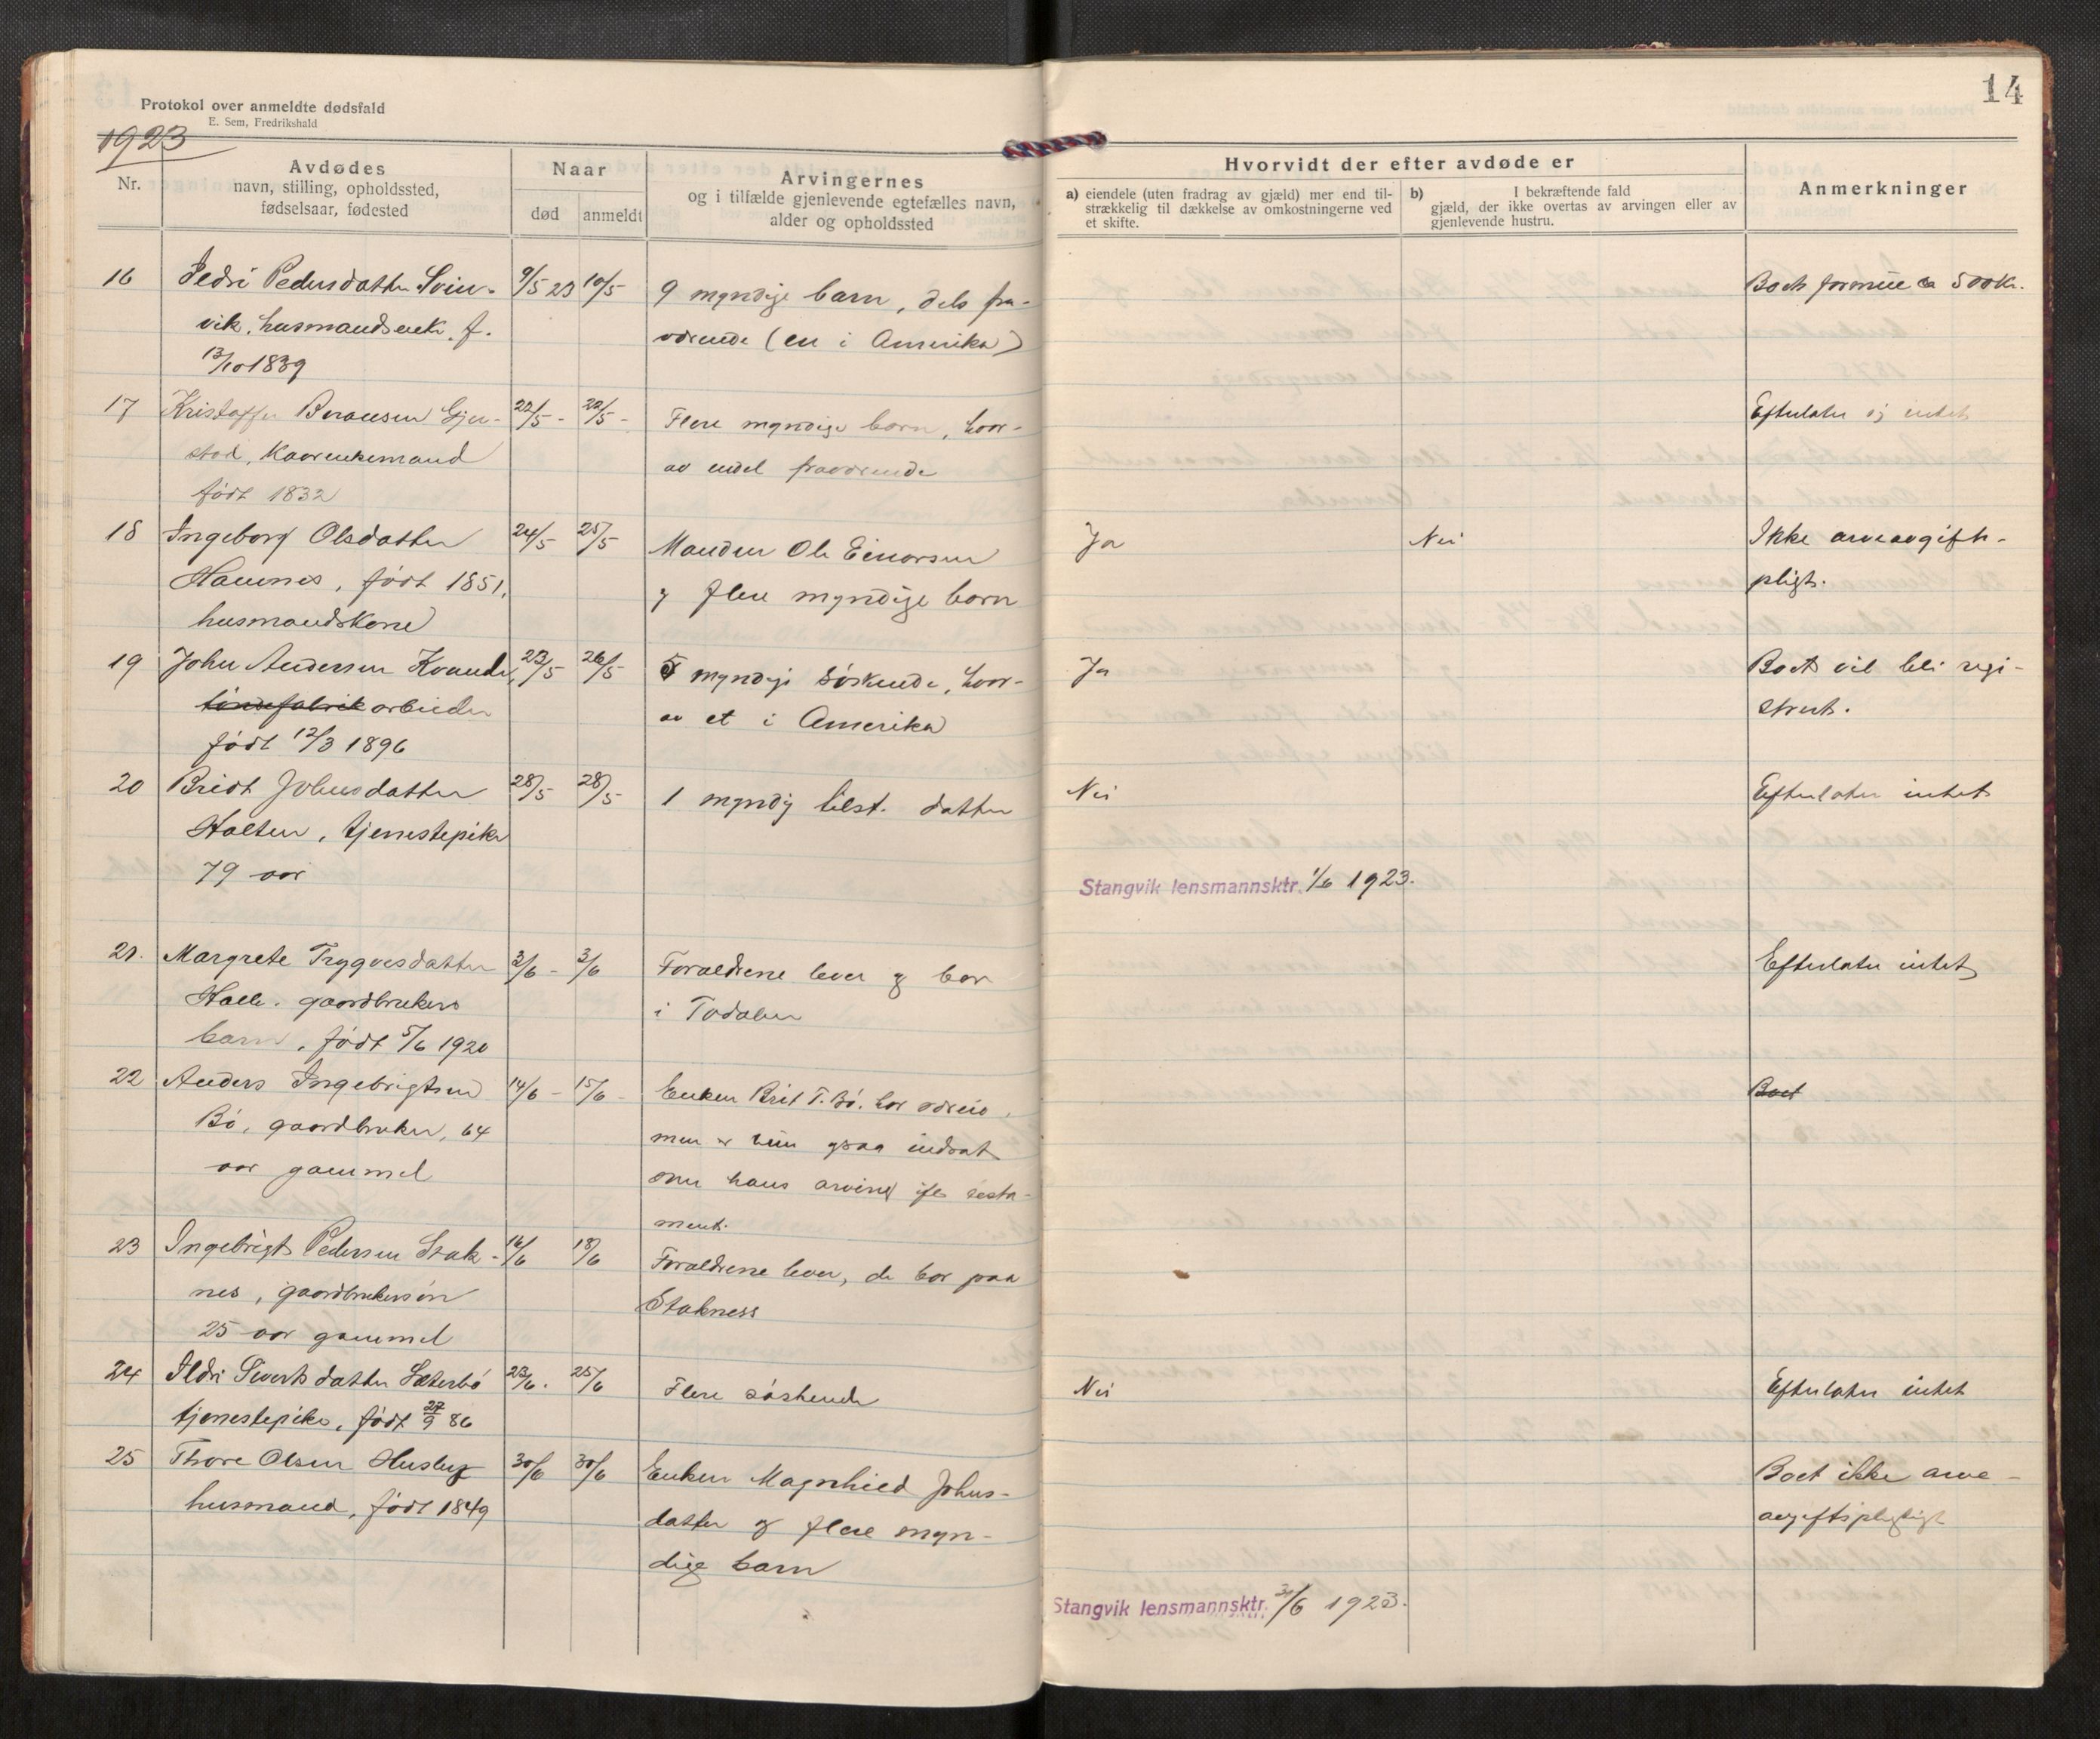 14
Protokol over anmeldte dødsfald
E. Sem, Fredrikshald
1923
Nr.
Avdødes
navn, stilling, opholdssted,
fødselsaar, fødested
Naar
død
anmeldt
Arvingernes
og i tilfælde gjenlevende egtefælles navn,
alder og opholdssted
Hvorvidt der efter avdøde er
a) eiendele (uten fradrag av gjæld) mer end til-
strækkelig til dækkelse av omkostningerne ved
et skifte.
b) I bekræftende fald
gjæld, der ikke overtas av arvingen eller av
gjenlevende hustru.
Anmerkninger
16 Ildri Pedersdatter Svin- 9/5 23 10/5 9 myndige barn, dels fra- Boets formue ca 500 Kr.
vik, husmandsenke, f. værende (en i Amerika)
13/10 1839
17 Kristoffer 22/5 - 22/5 - Flere myndige barn, hvor- Efterlater sig intet
stad, Kaarenkemand av endel fraværende
født 1832
18 Ingeborg Olsdatter 24/5 25/5 Manden Ole Einarsen Ja Nei Ikke arveavgifts-
Hamnes, født 1851, og flere myndige barn pligt.
husmandskone
19 John Andersen Kvande, 23/5 26/5 5 myndige søskende, hvor- Ja Boet vil bli regi-
tøndefabrik arbeider av et i Amerika strert.
født 12/3 1896
20 Bridt Johnsdatter 28/5 28/5 1 myndig tilst. datter Nei Efterlater intet
Halten, tjenestepike
79 aar
Stangvik lensmannsktr. 1/6 1923.
21. Margrete Trygvesdatter 3/6 - 3/6 Foraldrene lever og bor Efterlater intet
Halle, gaardbrukers i Todalen
barn, født 5/6 1920
22 Anders Ingebrigtsen 14/6 - 15/6 - Enken Brit T. Bø. Boet
Bø, gaardbruker, 64 men er hun ogsaa indsat
aar gammel som hans arving ifø testa-
ment.
23 Ingebrigt Pedersen Stak- 16/6 18/6 Foraldrene lever, de bor paa
nes, gaardbrukersøn Stakness
25 aar gammel
24 Ildri Sivertsdatter Sæterbø 23/6. 25/6 Flere søskende Nei Efterlater intet
tjenestepike, født 27/9 86
25 Thore Olsen Husby 30/6 30/6 Enken Magnhild Johns- Boet ikke arve-
husmand, født 1849 datter og flere myn- avgiftspligtigt
dige barn
Stangvik lensmannsktr. 30/6 1923.